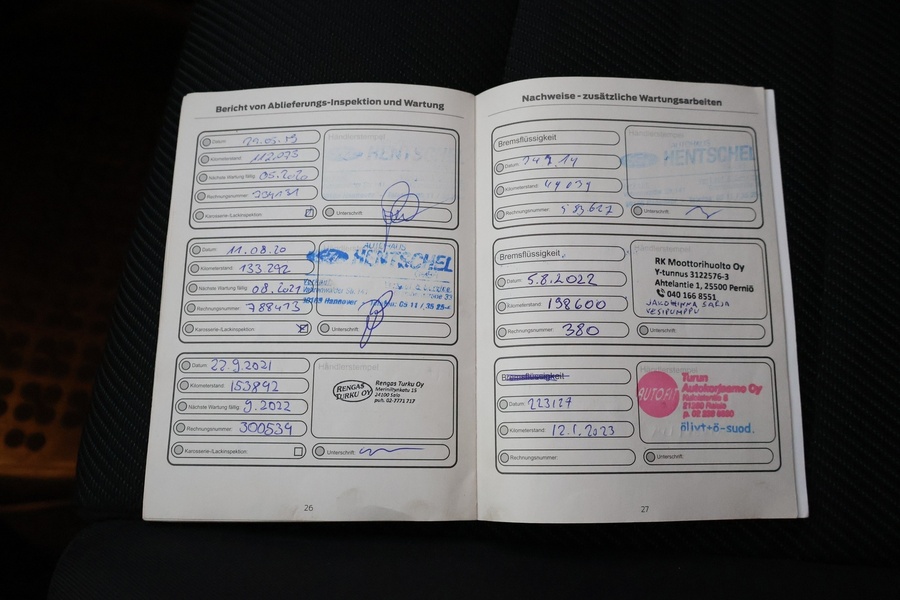 Bericht von Ablieferungs-Inspektion und Wartung
Datum:
Händlerstempel
Kilometerstand: 112.073
HENTSCHEL
Nächste Wartung fällig: 05.2020
Rechnungsnummer:
Karosserie-/Lackinspektion:
Unterschrift:
Datum: 11.08.20
AUTOHAUS
Kilometerstand: 133.292
HENTSCHEL
Nächste Wartung fällig: 08.2021
Rechnungsnummer: 788413
Hannover
Karosserie-/Lackinspektion:
Unterschrift:
Datum: 22.9.2021
Händlerstempel
Kilometerstand: 153892
RENGAS TURKU OY
Rengas Turku Oy
Meriniitynkatu 15
24100 Salo
puh. 02-7771 717
Nächste Wartung fällig: 9.2022
Rechnungsnummer: 300534
Karosserie-/Lackinspektion:
Unterschrift:
26
Nachweise - zusätzliche Wartungsarbeiten
Bremsflüssigkeit
Händlerstempel
Datum:
HENTSCHEL
Kilometerstand:
Rechnungsnummer:
Unterschrift:
Bremsflüssigkeit
Händlerstempel
Datum: 5.8.2022
RK Moottorihuolto Oy
Y-tunnus 3122576-3
Ahtelantie 1, 25500 Perniö
040 166 8551
JAKOHIHNA SARJA
VESIPUMPPU
Kilometerstand: 198600
Rechnungsnummer: 380
Unterschrift:
Bremsflüssigkeit
Händlerstempel
Datum: 223127
AUTOFIT
Turun
Autokorjaamo Oy
öljyt+ö-suod.
Kilometerstand: 12.1.2023
Rechnungsnummer:
Unterschrift:
27